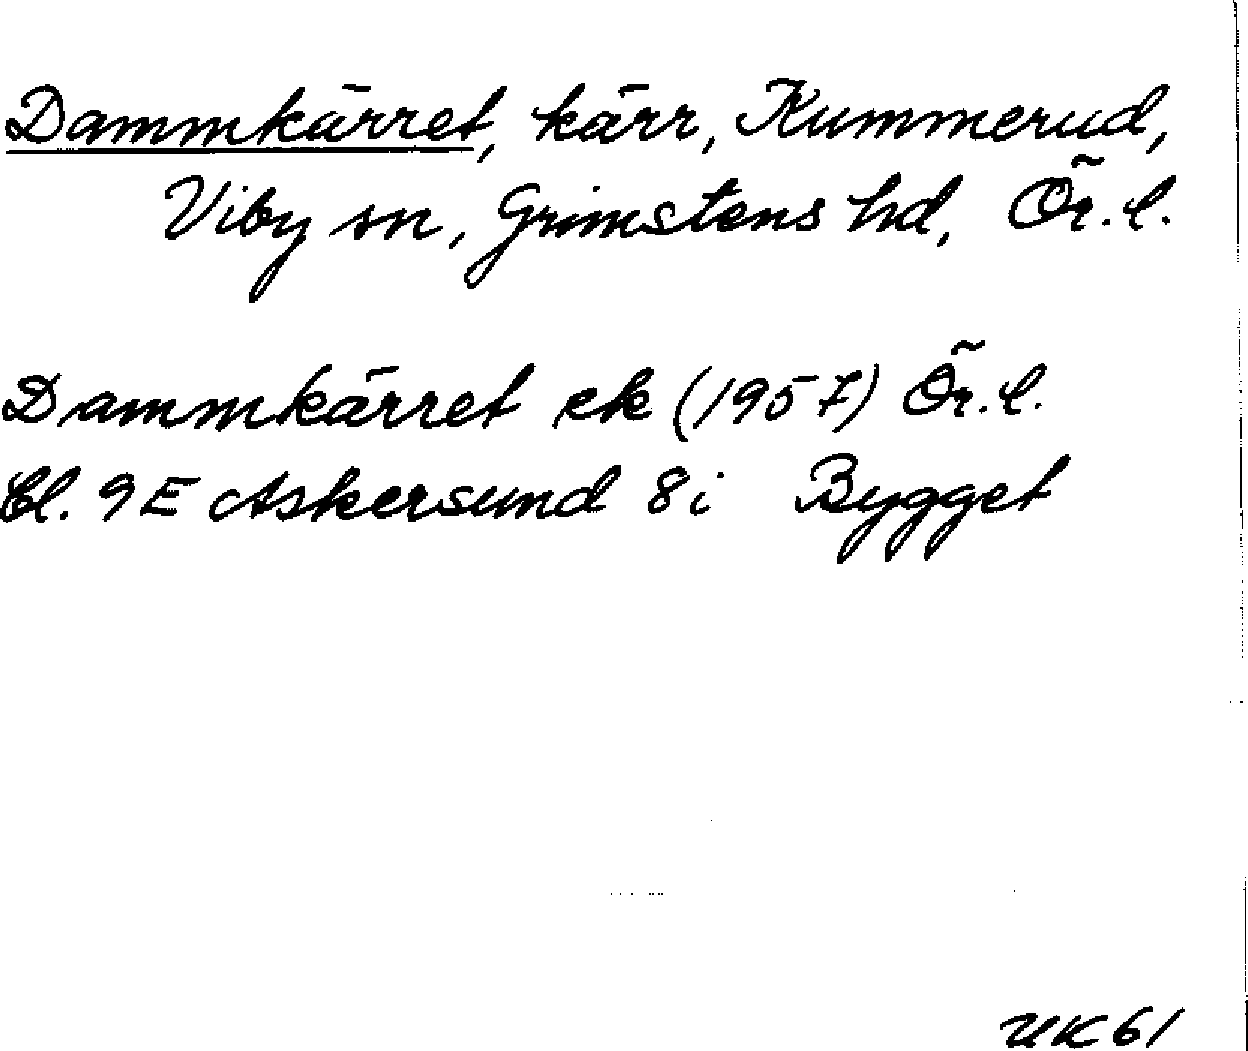 Dammkärret, kärr, Kummerud,
Viby sn, Grimstens hd, Ör. l.
Dammkärret ek (1957) Ör. l.
Bl. 9E Askersund 8i Bygget
UK 61